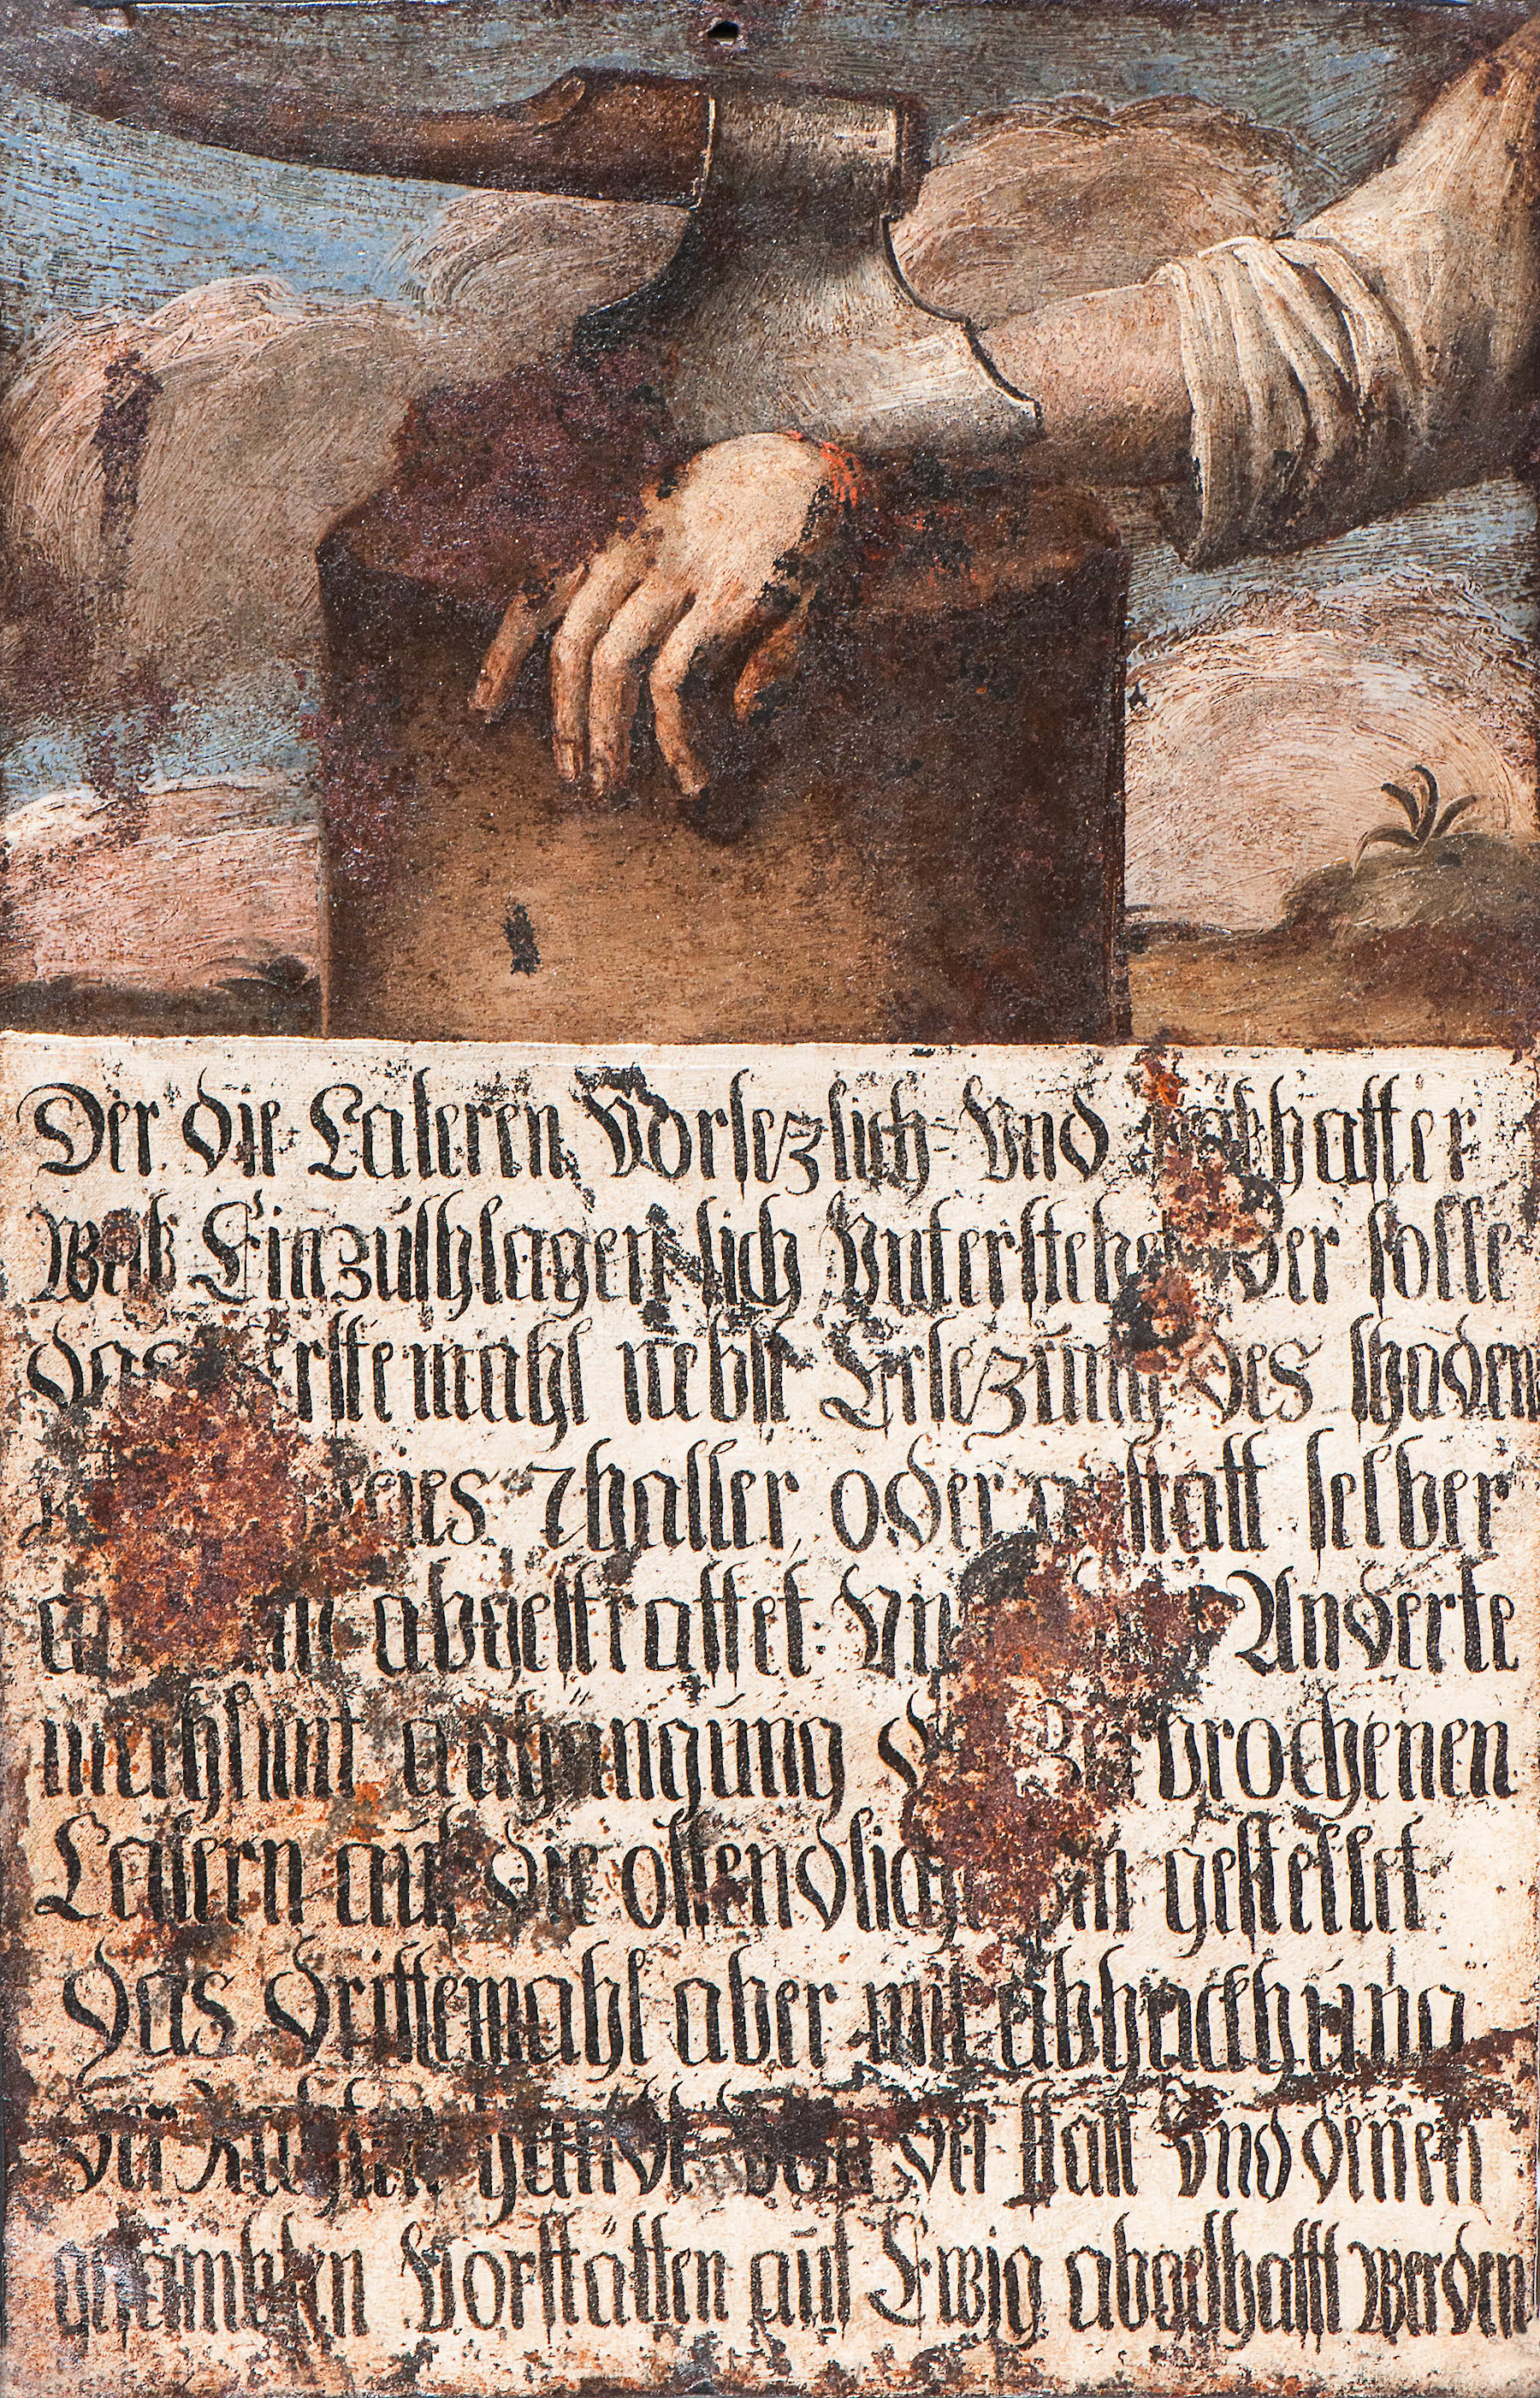 Der die Lateren Vorsezlich Vnd
Weiß Einzuschlagen sich Vnterstehet der solle
das Erstemahl nebst Ersezung des schadens
Thaller oder anstatt selber
abgestraffet Anderte
mahl mit anhangung zerbrochenen
Latern auf die offendliche gestellet
das drittemahl aber mit abhackhung
der Rechten handt von der statt Vnd denen
gesambten Vorstätten auf Ewig abgeschafft werden